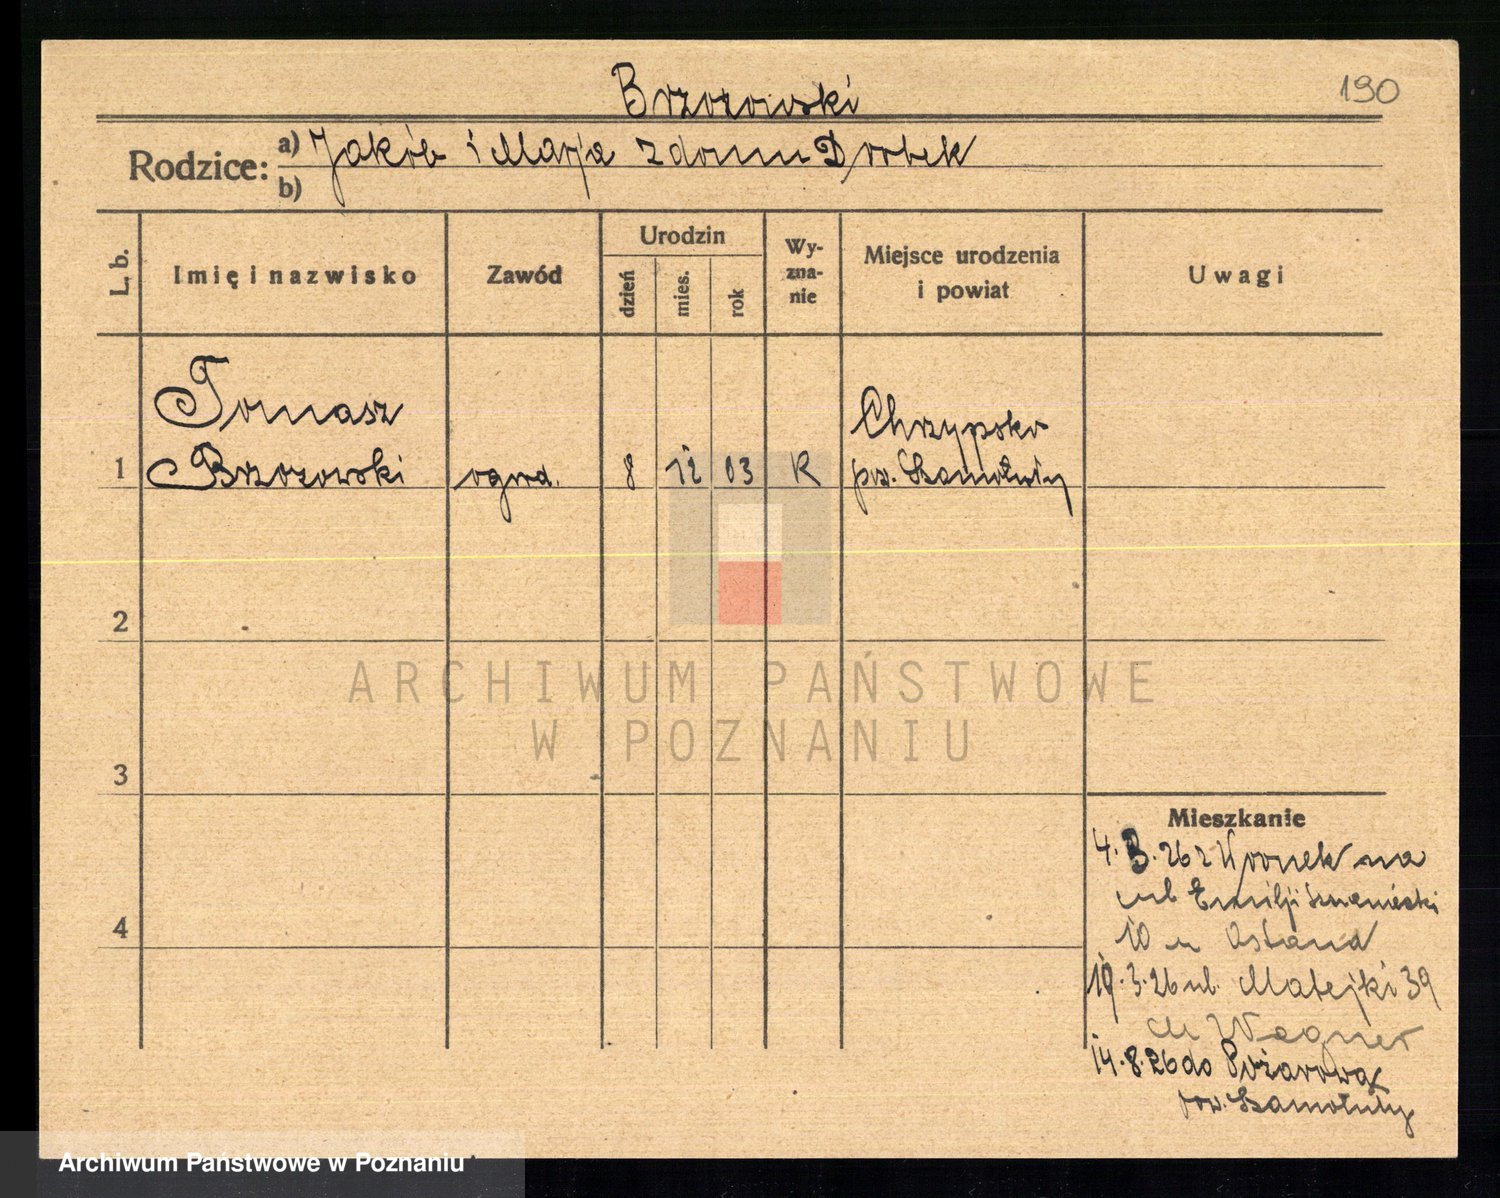 Brzozowski
190
Rodzice: a) Jakób i Marja z domu Drobek
b)
L. b. Imię i nazwisko Zawód Urodzin dzień mies. rok Wy-zna-nie Miejsce urodzenia i powiat Uwagi
Tomasz Chrzypsko
1 Brzozowski ogrod. 8 12 03 K pow. Szamotuły
2
ARCHIWUM PAŃSTWOWE
W POZNANIU
3
Mieszkanie
4. 3. 26 z Wronek na
ul Emilji
4
10 u
19.3.26 ul. Matejki 39
u Wagner
14.8.26 do Pożarowa
pow. Szamotuły
Archiwum Państwowe w Poznaniu